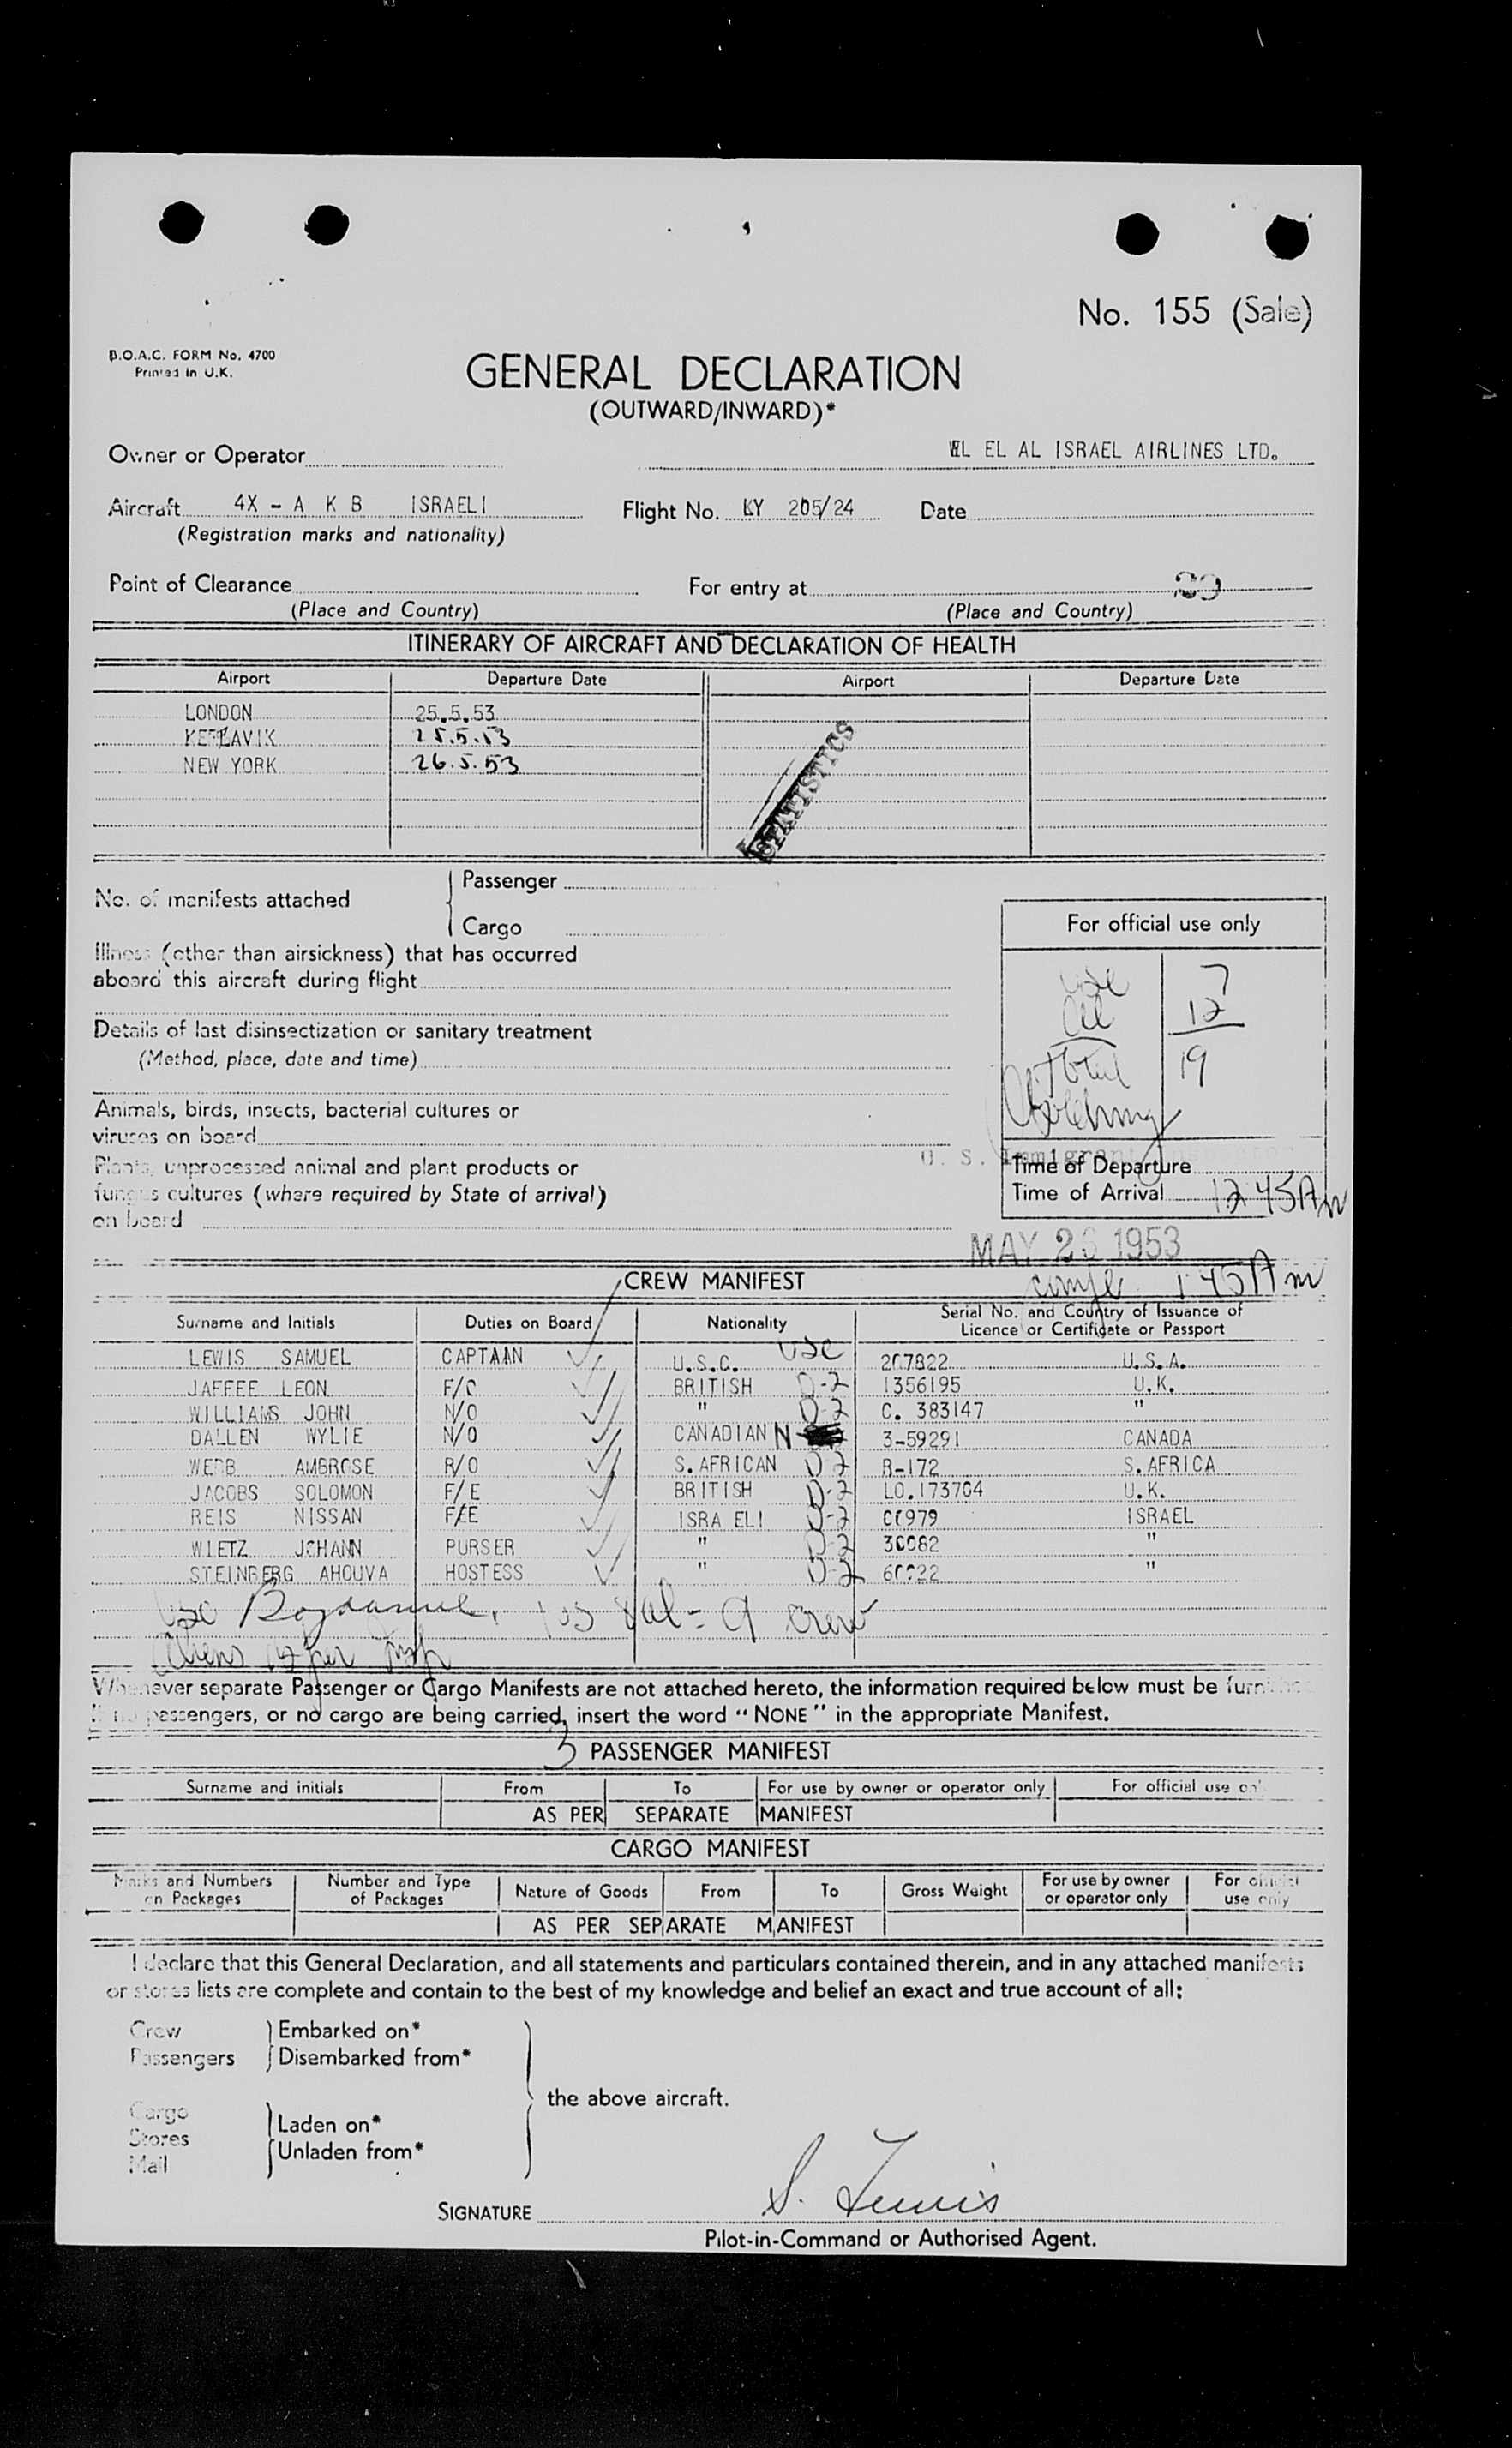 No. 155 (Sale)
B.O.A.C. FORM No. 4700
Printed in U.K.
GENERAL DECLARATION
(OUTWARD/INWARD)*
Owner or Operator EL EL AL ISRAEL AIRLINES LTD.
Aircraft 4X - A K B ISRAELI Flight No. LY 205/24 Date
(Registration marks and nationality)
Point of Clearance For entry at
(Place and Country) (Place and Country)
ITINERARY OF AIRCRAFT AND DECLARATION OF HEALTH
Airport Departure Date Airport Departure Date
LONDON 25.5.53
KEFLAVIK 25.5.53
NEW YORK 26.5.53
STATISTICS
No. of manifests attached Passenger
Cargo
For official use only
Illness (other than airsickness) that has occurred
aboard this aircraft during flight
usc 7
al 12
Total 19
Details of last disinsectization or sanitary treatment
(Method, place, date and time)
Animals, birds, insects, bacterial cultures or
viruses on board
Plants, unprocessed animal and plant products or
fungus cultures (where required by State of arrival)
on board
U. S. Immigrant Inspector
Time of Departure
Time of Arrival 12 45 AM
MAY 26 1953
compl. 1:45 AM
CREW MANIFEST
Surname and Initials Duties on Board Nationality Serial No. and Country of Issuance of Licence or Certificate or Passport
LEWIS SAMUEL CAPTAAN U.S.C. usc 207822 U.S.A.
JAFFEE LEON F/O BRITISH D-2 1356195 U.K.
WILLIAMS JOHN N/O " D-2 C. 383147 "
DALLEN WYLIE N/O CANADIAN N 3-59291 CANADA
WEBB AMBROSE R/O S. AFRICAN D-2 R-172 S. AFRICA
JACOBS SOLOMON F/E BRITISH D-2 LO.173704 U.K.
REIS NISSAN F/E ISRA ELI D-2 979 ISRAEL
WIETZ JOHANN PURSER " D-2 30082 "
STEINBERG AHOUVA HOSTESS " D-2 "
usc 9 crew
Aliens 12 per
Whenever separate Passenger or Cargo Manifests are not attached hereto, the information required below must be furnished
If no passengers, or no cargo are being carried, insert the word “ NONE ” in the appropriate Manifest.
3
PASSENGER MANIFEST
Surname and initials From To For use by owner or operator only For official use only
AS PER SEPARATE MANIFEST
CARGO MANIFEST
Marks and Numbers on Packages Number and Type of Packages Nature of Goods From To Gross Weight For use by owner or operator only For official use only
AS PER SEPARATE MANIFEST
I declare that this General Declaration, and all statements and particulars contained therein, and in any attached manifests
or stores lists are complete and contain to the best of my knowledge and belief an exact and true account of all:
Crew Embarked on*
Passengers Disembarked from*
the above aircraft.
Cargo
Stores Laden on*
Mail Unladen from*
SIGNATURE S. Lewis
Pilot-in-Command or Authorised Agent.